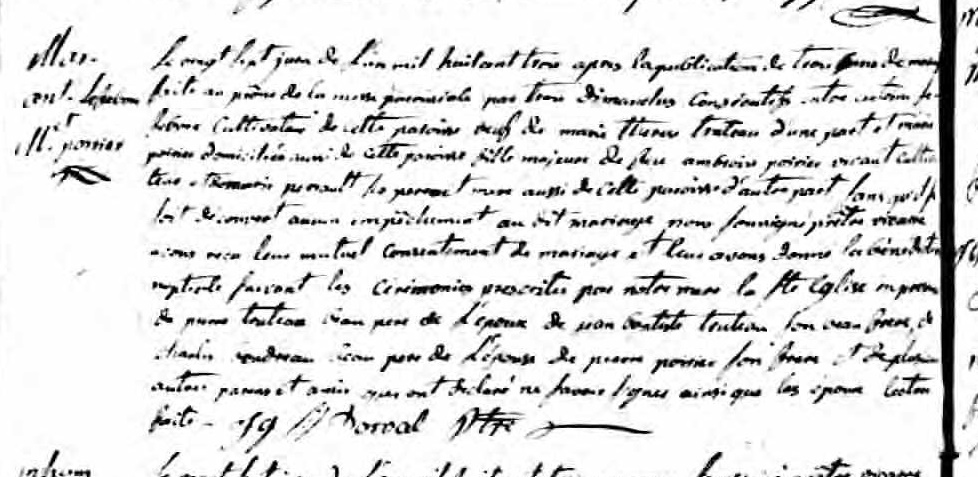 Mar.
ant. Lefebvre
et
M. poirier
Le vingt sept juin de l'an mil huit cent trois apres la publication de trois bans de mariage
faite au prône de la messe paroissiale par trois Dimanches Consécutifs entre antoine le
febvre Cultivateur de cette paroisse veuf de marie therese truteau d'une part et marie
poirier domiciliée aussi de cette paroisse fille majeure de feu ambroise poirier vivant cultiva
teur et de marie perrault ses pere et mere aussi de cette paroisse d'autre part sans qu'il se
soit découvert aucun empêchement au dit mariage nous soussigné prêtre vicaire
avons reçu leur mutuel Consentement de mariage et leur avons donné la bénédiction
nuptiale suivant les Cérémonies prescrites par notre mere la Ste Eglise en presence
de pierre truteau beau pere de L'époux de jean baptiste truteau son beau frere, de
charles boudreau beau pere de L'épouse de pierre poirier son frere et de plusieurs
autres parens et amis qui ont declaré ne savoir signer ainsi que les époux lecture
faite - Dorval Ptre